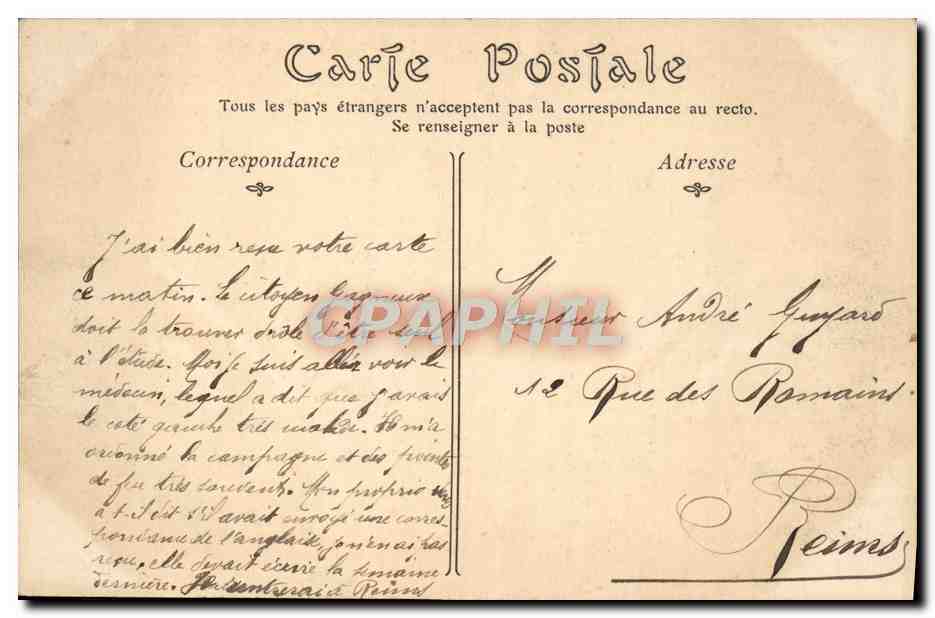 Carte Postale
Tous les pays étrangers n'acceptent pas la correspondance au recto.
Se renseigner à la poste
Correspondance
Adresse
J'ai bien reçu votre carte
ce matin. Le citoyen
doit la trouver drôle d'être seul
à l'étude. Moi je suis allé voir le
médecin, lequel a dit que j'avais
le coté gauche très malade. Il m'a
ordonné la campagne et des pointes
de feu très souvent. Mon proprio
a t-il dit s'il avait envoyé une corres
pondance de l'anglais, je n'en ai pas
reçu, elle devait écrire la semaine
dernière. rentrerai à Reims
Monsieur André Guyard
12 Rue des Romains.
Reims
CPAPHIL